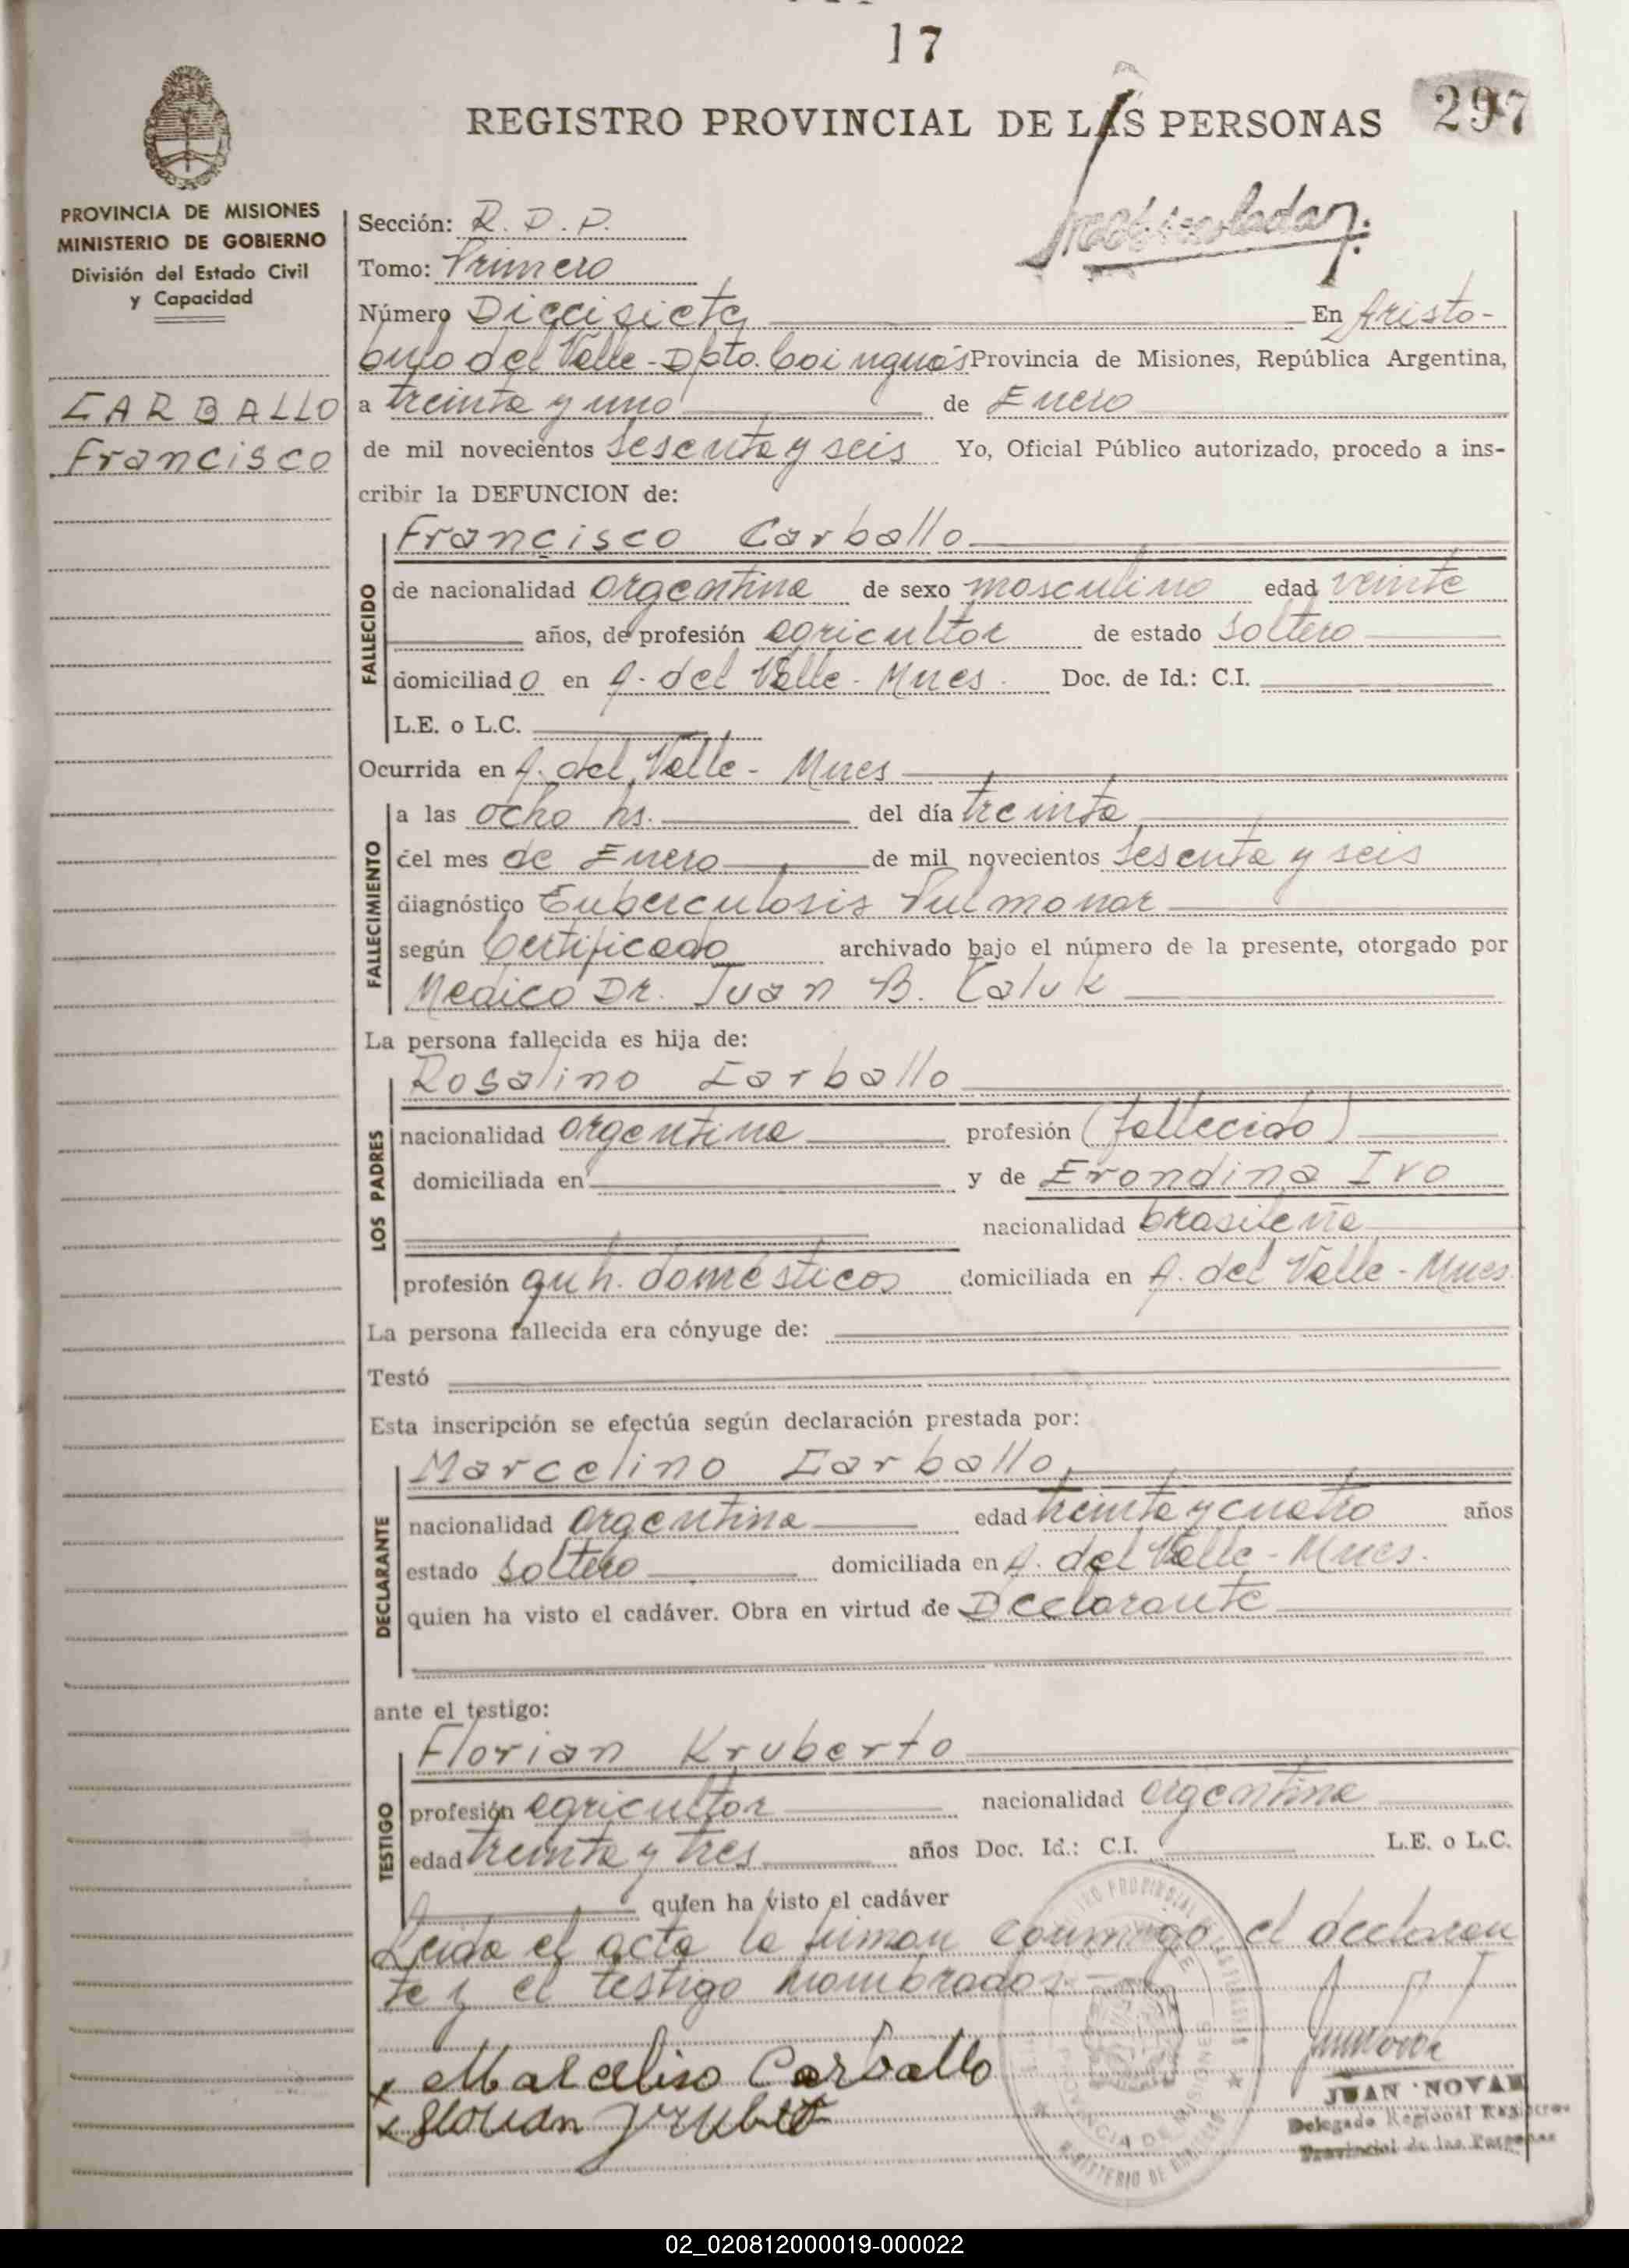 17
REGISTRO PROVINCIAL DE LAS PERSONAS
297
PROVINCIA DE MISIONES
MINISTERIO DE GOBIERNO
División del Estado Civil
y Capacidad
CARBALLO
Francisco
Sección: R. D. P.
Tomo: Primero
Número Diecisiete En Aristo-
bulo del Valle - Dpto. Cainguás Provincia de Misiones, República Argentina,
a treinta y uno de Enero
de mil novecientos sesenta y seis Yo, Oficial Público autorizado, procedo a ins-
cribir la DEFUNCION de:
Francisco Carballo
FALLECIDO
de nacionalidad argentina de sexo masculino edad veinte
años, de profesión agricultor de estado soltero
domiciliado en A. del Valle - Mnes. Doc. de Id.: C.I.
L.E. o L.C.
Ocurrida en A. del Valle - Mnes
FALLECIMIENTO
a las ocho hs. del día treinta
del mes de Enero de mil novecientos sesenta y seis
diagnóstico Tuberculosis Pulmonar
según Certificado archivado bajo el número de la presente, otorgado por
Medico Dr. Juan B. Kaluk
La persona fallecida es hija de:
Rosalino Carballo
LOS PADRES
nacionalidad argentina profesión (fallecido)
domiciliada en y de Erondina Ivo
nacionalidad brasileña
profesión quh. domésticos domiciliada en A. del Valle - Mnes.
La persona fallecida era cónyuge de:
Testó
Esta inscripción se efectúa según declaración prestada por:
Marcelino Carballo
DECLARANTE
nacionalidad argentina edad treinta y cuatro años
estado soltero domiciliada en A. del Valle - Mnes.
quien ha visto el cadáver. Obra en virtud de Declarante
ante el testigo:
Florian Kruberto
TESTIGO
profesión agricultor nacionalidad argentina
edad treinta y tres años Doc. Id.: C.I. L.E. o L.C.
quien ha visto el cadáver
Leida el acta la firman conmigo, el declaran
te y el testigo nombrados.
Marceliso Carballo
Florian
JUAN NOVAK
Delegado Regional Registro
Provincial de las Personas
02_020812000019-000022